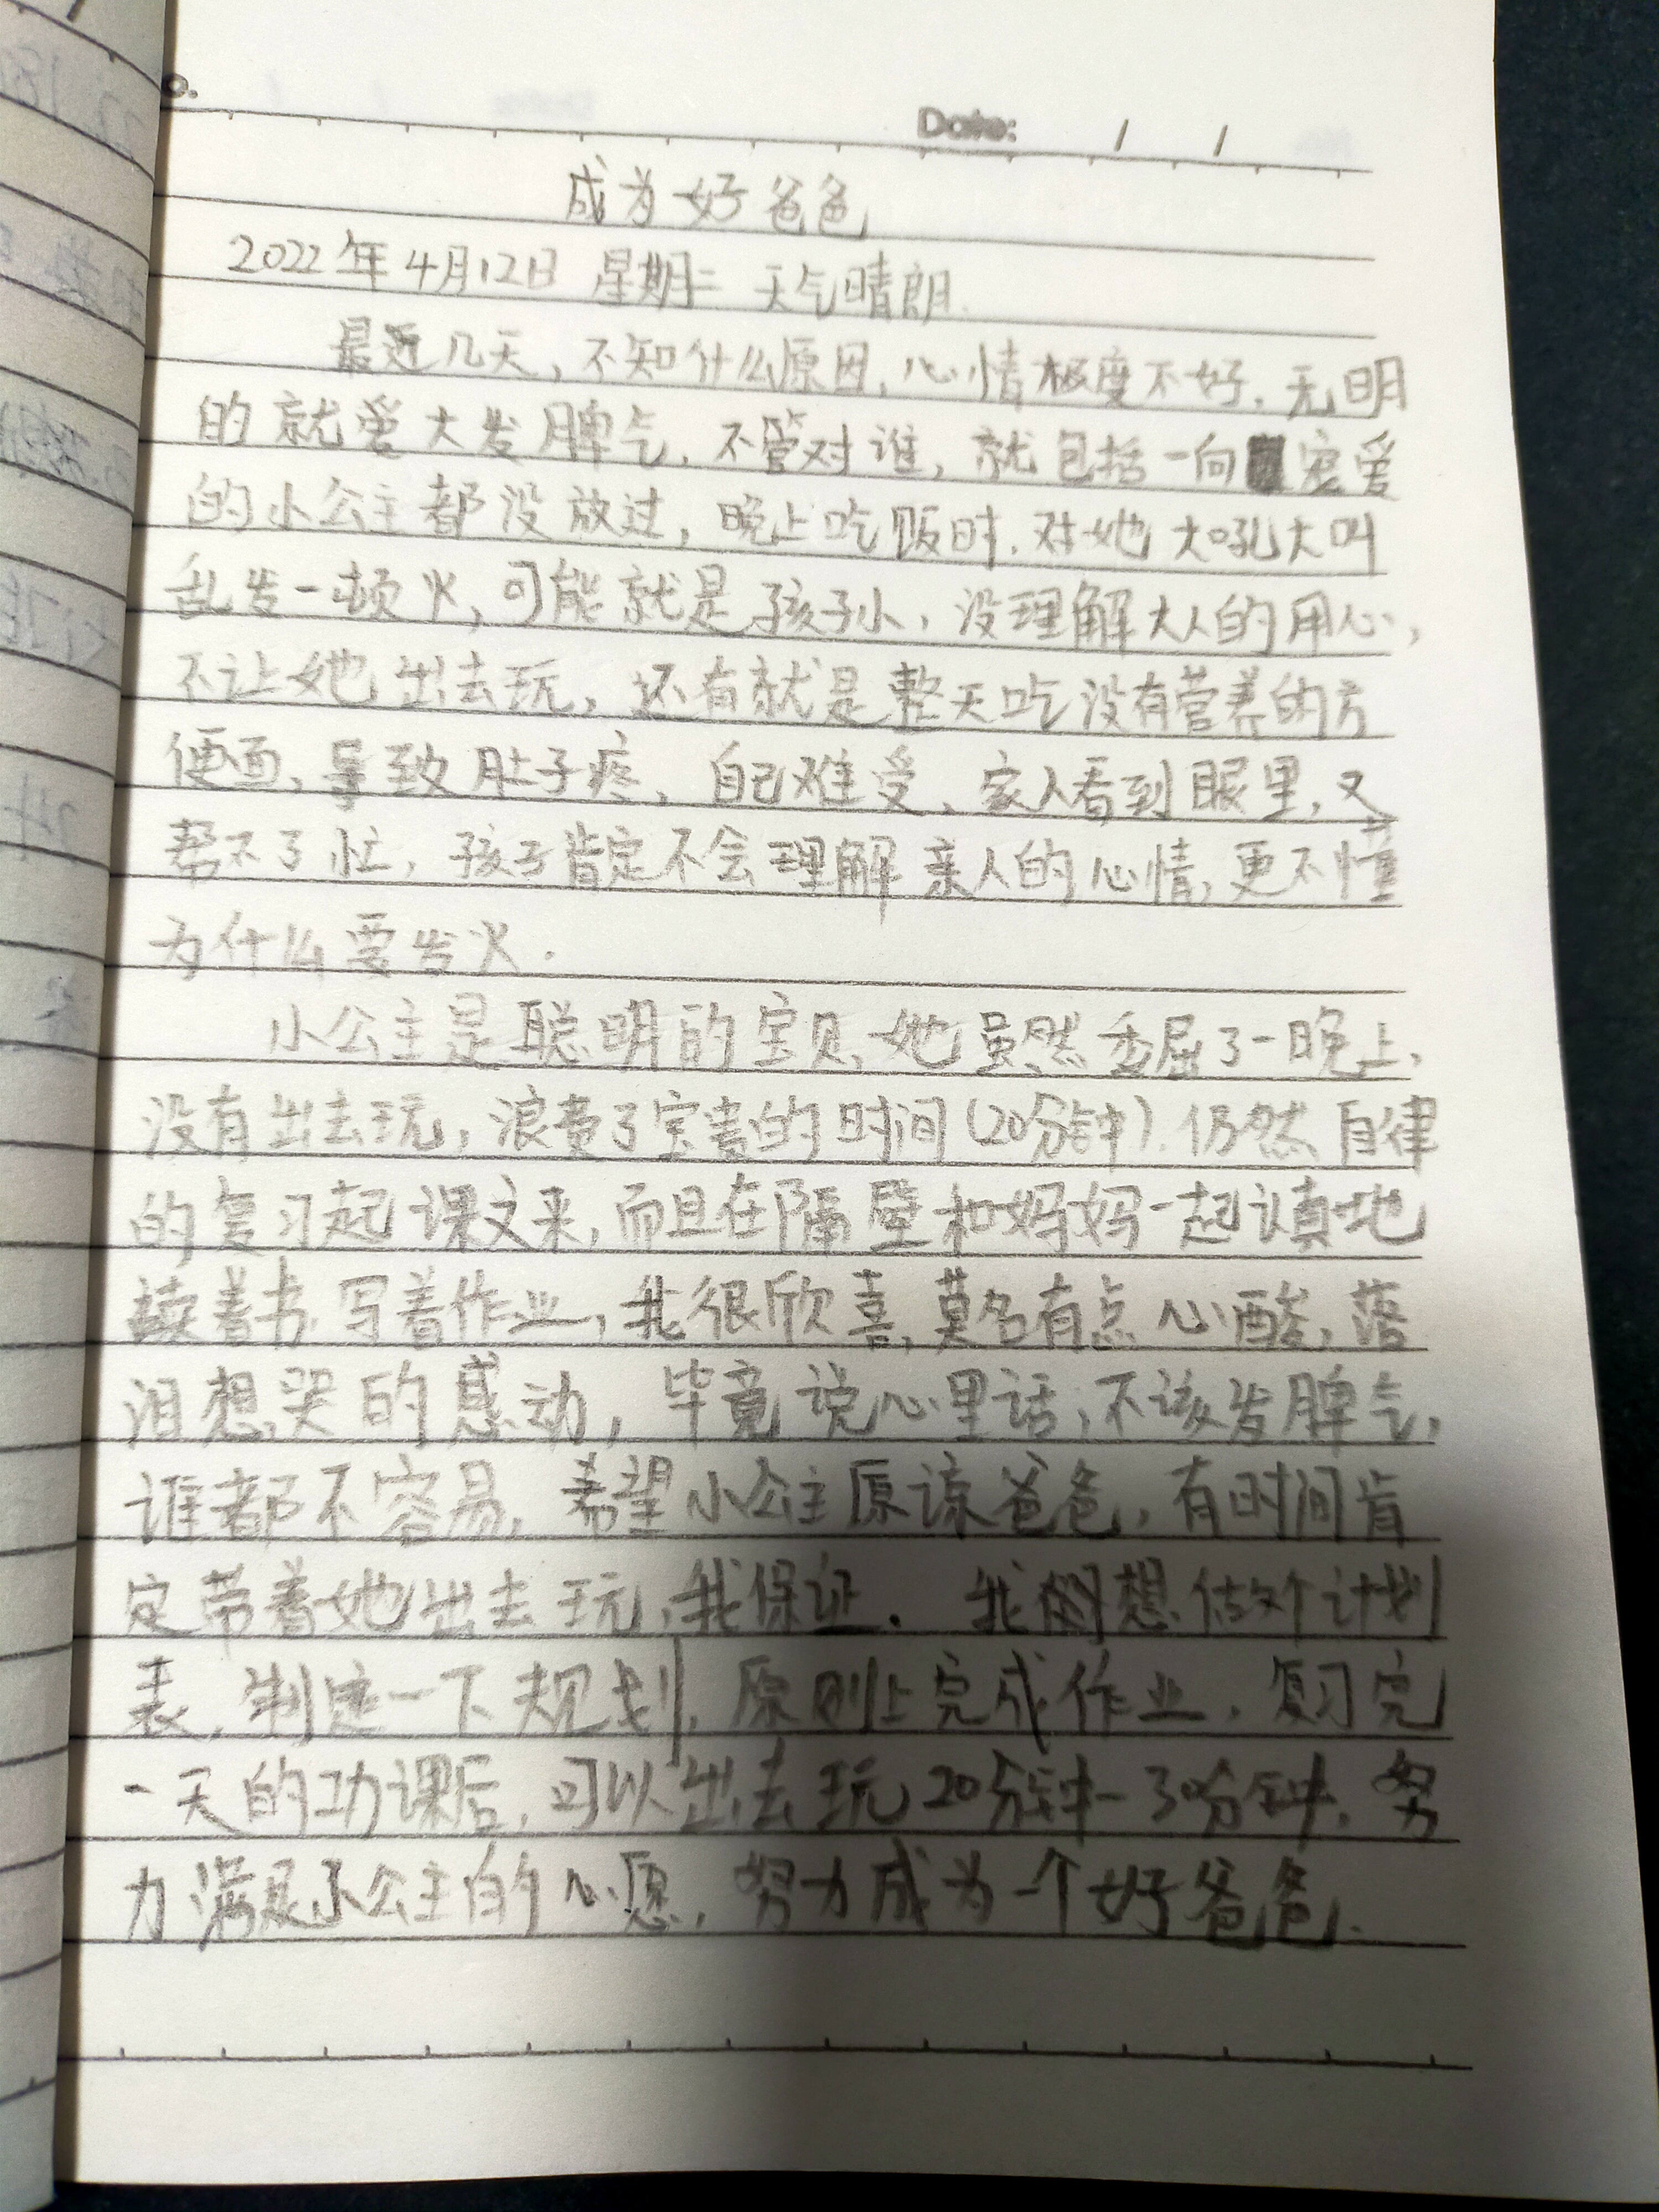 Date: / /
成为好爸爸
2022年4月12日 星期二 天气晴朗.
最近几天,不知什么原因,心情极度不好,无明
的就爱大发脾气,不管对谁,就包括一向宠爱
的小公主都没放过,晚上吃饭时,对她大吼大叫
乱发一顿火,可能就是孩子小,没理解大人的用心,
不让她出去玩,还有就是整天吃没有营养的方
便面,导致肚子疼,自己难受,家人看到眼里,又
帮不了忙,孩子肯定不会理解亲人的心情,更不懂
为什么要发火.
小公主是聪明的宝贝,她虽然委屈了一晚上,
没有出去玩,浪费了宝贵的时间(20分钟).仍然自律
的复习起课文来,而且在隔壁和妈妈一起认真地
读着书,写着作业,我很欣喜,莫名有点心酸,落
泪想哭的感动,毕竟说心里话,不该发脾气,
谁都不容易,希望小公主原谅爸爸,有时间肯
定带着她出去玩,我保证. 我倒想做个计划
表,制定一下规划,原则上完成作业,复习完
一天的功课后,可以出去玩20分钟-30分钟,努
力满足小公主的心愿,努力成为一个好爸爸.